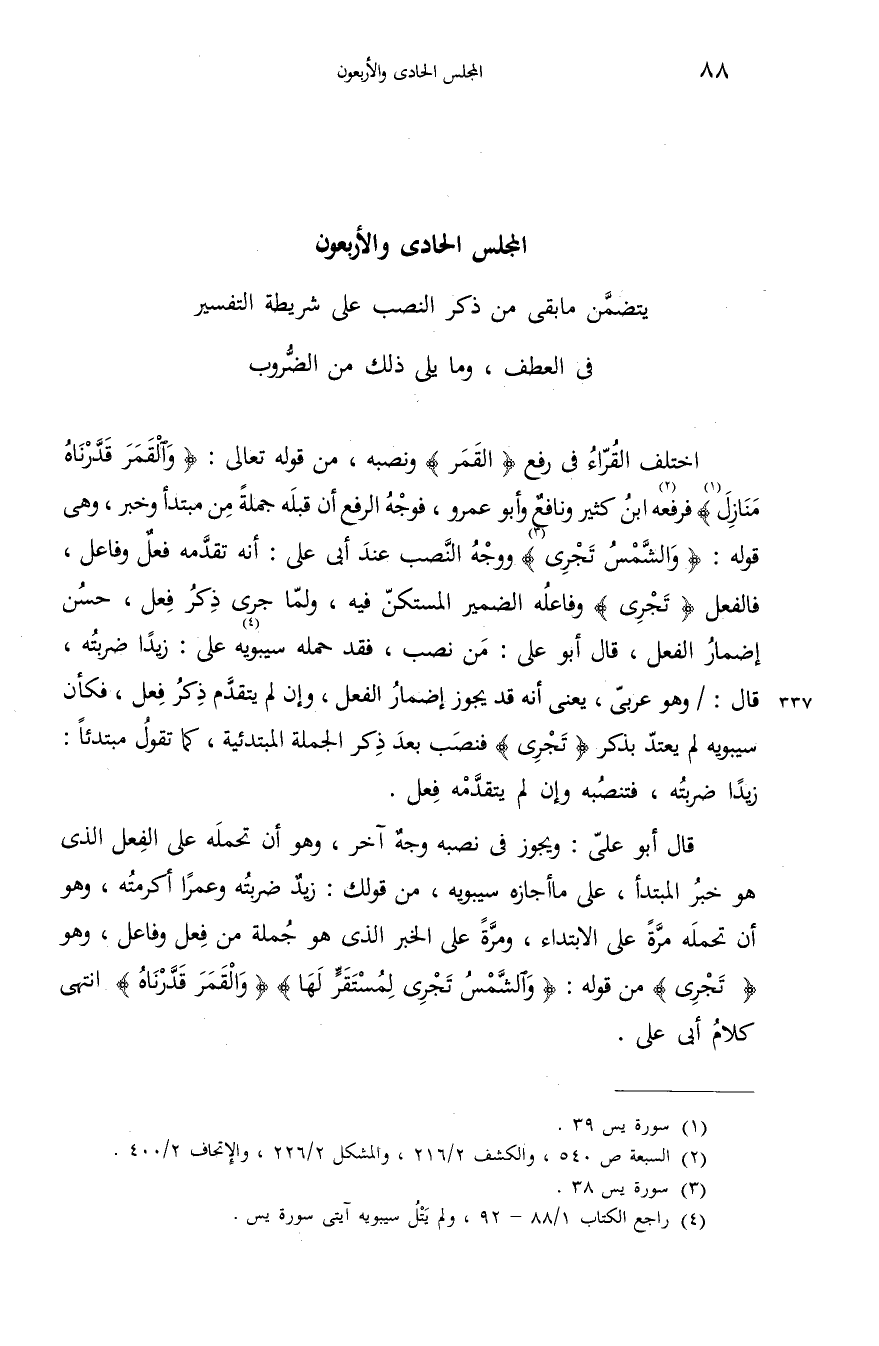 ٨٨ المجلس الحادى والأربعون
المجلس الحادى والأربعون
يتضمَّن مابقى من ذكر النصب على شريطة التفسير
فى العطف ، وما يلى ذلك من الضُّروب
اختلف القُرّاءُ فى رفع ﴿ القَمَر ﴾ ونصبه ، من قوله تعالى : ﴿ وَٱلْقَمَرَ قَدَّرْنَاهُ
مَنَازِلَ ﴾(١) فرفعه(٢) ابنُ كثير ونافعٌ وأبو عمرو ، فوجْهُ الرفع أن قبلَه جملةً مِن مبتدأ وخبر ، وهى
قوله : ﴿ وَالشَّمْسُ تَجْرِى ﴾(٣) ووجْهُ النَّصب عندَ أبى على : أنه تقدَّمه فعلٌ وفاعل ،
فالفعل ﴿ تَجْرِى ﴾ وفاعلُه الضمير المستكنّ فيه ، ولمّا جرى ذِكرُ فِعل ، حسُن
إضمارُ الفعل ، قال أبو على : مَن نصب ، فقد حمله سيبويه(٤) على : زيدًا ضربتُه ،
٣٣٧ قال : / وهو عربىّ ، يعنى أنه قد يجوز إضمارُ الفعل ، وإن لم يتقدَّم ذِكرُ فِعل ، فكأن
سيبويه لم يعتدّ بذكر ﴿ تَجْرِى ﴾ فنصَب بعدَ ذِكر الجملة المبتدئية ، كما تقولُ مبتدئاً :
زيدًا ضربتُه ، فتنصُبه وإن لم يتقدَّمْه فِعل .
قال أبو علىّ : ويجوز فى نصبه وجهٌ آخر ، وهو أن تحملَه على الفِعل الذى
هو خبرُ المبتدأ ، على ماأجازه سيبويه ، من قولك : زيدٌ ضربتُه وعمرًا أكرمتُه ، وهو
أن تحملَه مرَّةً على الابتداء ، ومرَّةً على الخبر الذى هو جُملة من فِعل وفاعل ، وهو
﴿ تَجْرِى ﴾ من قوله : ﴿ وَٱلشَّمْسُ تَجْرِى لِمُسْتَقَرٍّ لَهَا ﴾ ﴿ وَالْقَمَرَ قَدَّرْنَاهُ ﴾ انتهى
كلامُ أبى على .
(١) سورة يس ٣٩ .
(٢) السبعة ص ٥٤٠ ، والكشف ٢١٦/٢ ، والمشكل ٢٢٦/٢ ، والإتحاف ٤٠٠/٢ .
(٣) سورة يس ٣٨ .
(٤) راجع الكتاب ٨٨/١ – ٩٢ ، ولم يَتْلُ سيبويه آيتى سورة يس .